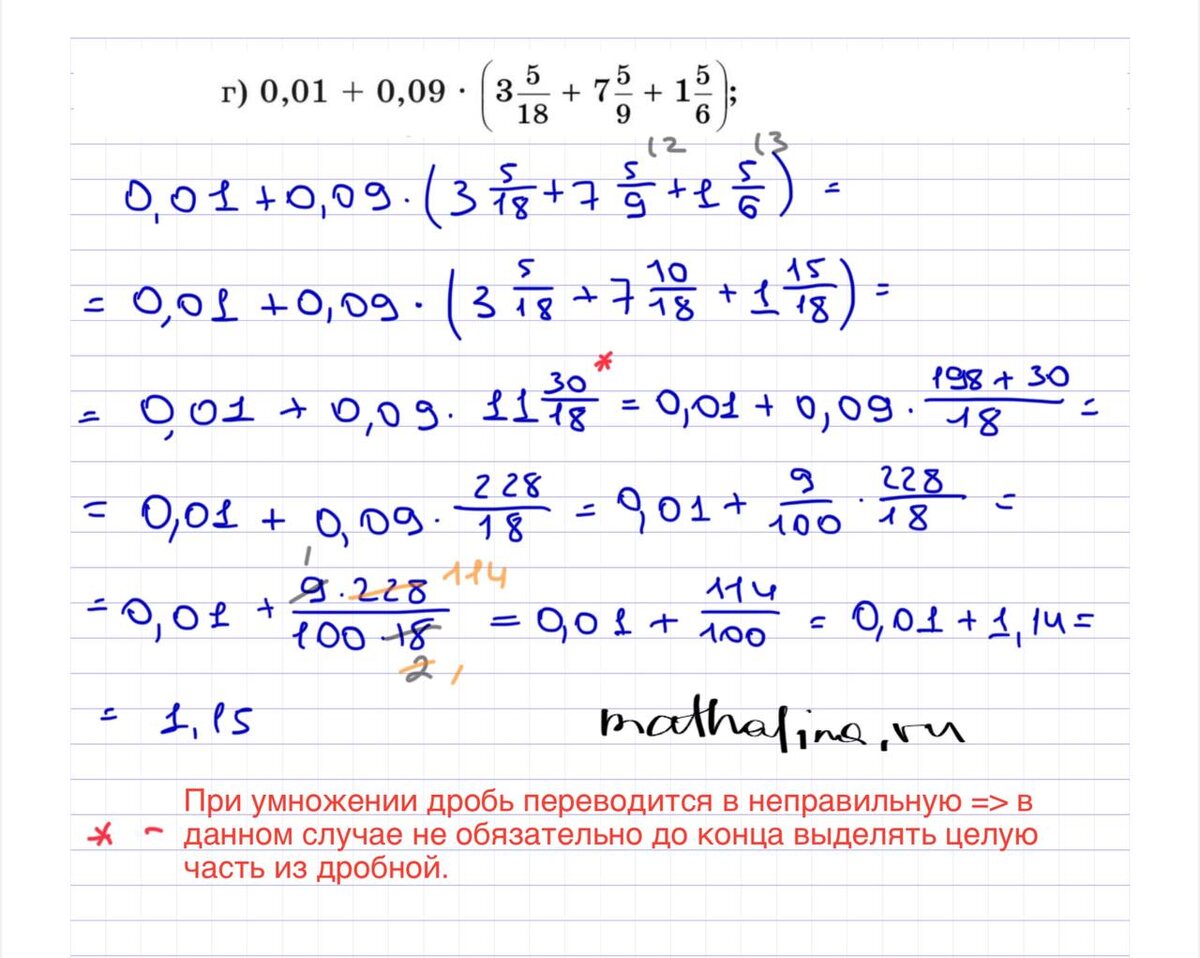 г) 0,01 + 0,09 · (3 5/18 + 7 5/9 + 1 5/6);
(2 (3
0,01 + 0,09 · (3 5/18 + 7 5/9 + 1 5/6) =
= 0,01 + 0,09 · (3 5/18 + 7 10/18 + 1 15/18) =
= 0,01 + 0,09 · 11 30/18 * = 0,01 + 0,09 · (198 + 30)/18 =
= 0,01 + 0,09 · 228/18 = 0,01 + 9/100 · 228/18 =
= 0,01 + (9 · 228)/(100 · 18) 1 114 2 1 = 0,01 + 114/100 = 0,01 + 1,14 =
= 1,15 mathalina.ru
При умножении дробь переводится в неправильную => в
* - данном случае не обязательно до конца выделять целую
часть из дробной.